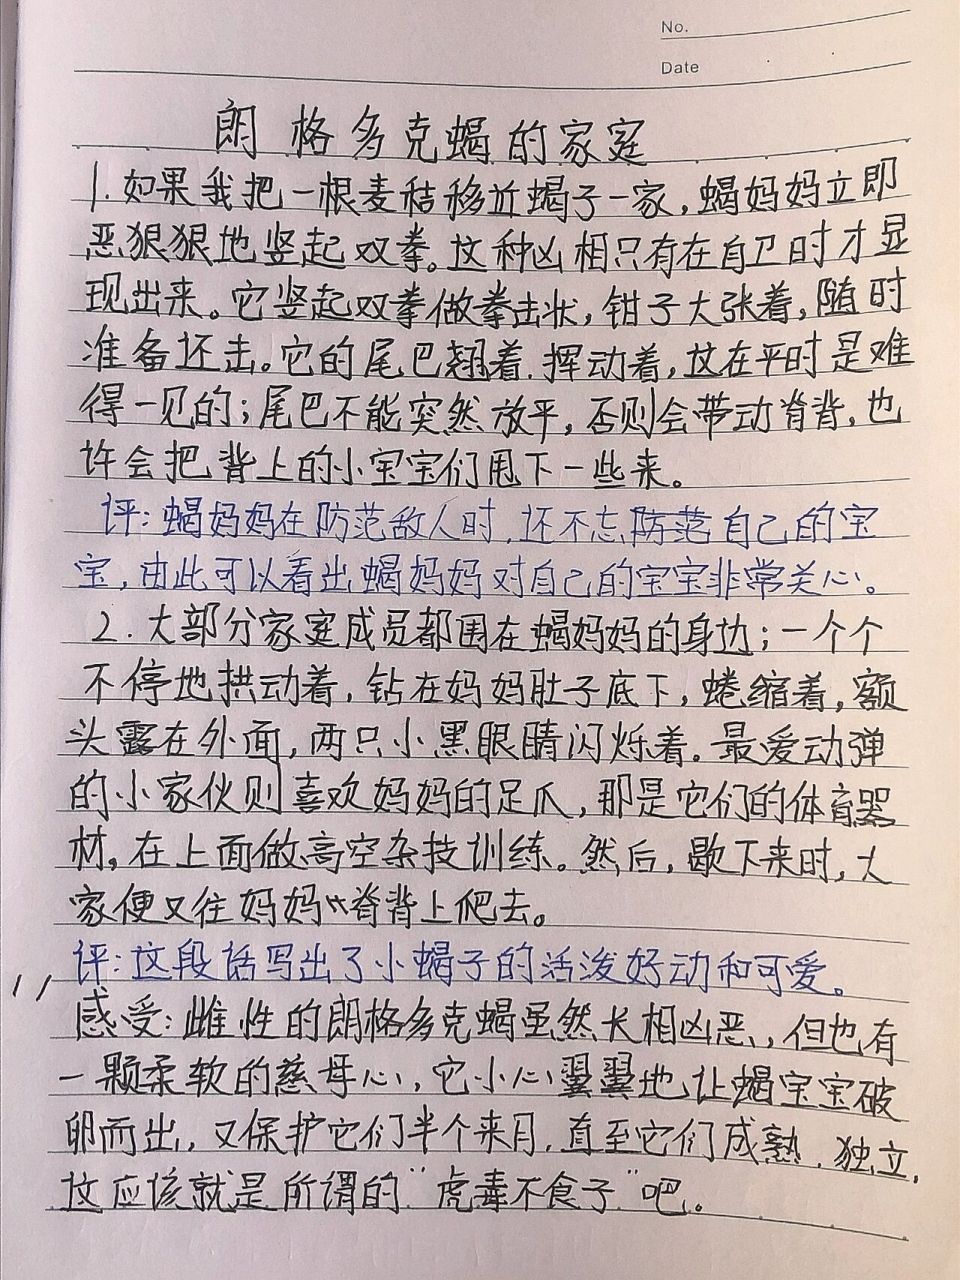 No.
Date
朗格多克蝎的家庭
1.如果我把一根麦秸移近蝎子一家,蝎妈妈立即
恶狠狠地竖起双拳。这种凶相只有在自卫时才显
现出来。它竖起双拳做拳击状,钳子大张着,随时
准备还击。它的尾巴翘着.挥动着,这在平时是难
得一见的;尾巴不能突然放平,否则会带动脊背,也
许会把背上的小宝宝们甩下一些来。
评:蝎妈妈在防范敌人时,还不忘防范自己的宝
宝,由此可以看出蝎妈妈对自己的宝宝非常关心。
2.大部分家庭成员都围在蝎妈妈的身边;一个个
不停地拱动着,钻在妈妈肚子底下,蜷缩着,额
头露在外面,两只小黑眼睛闪烁着。最爱动弹
的小家伙则喜欢妈妈的足爪,那是它们的体育器
材。在上面做高空杂技训练。然后,歇下来时,大
家便又往妈妈脊背上爬去。
评:这段话写出了小蝎子的活泼好动和可爱。
感受:雌性的朗格多克蝎虽然长相凶恶,但也有
一颗柔软的慈母心,它小心翼翼地让蝎宝宝破
卵而出,又保护它们半个来月,直至它们成熟.独立,
这应该就是所谓的“虎毒不食子”吧。